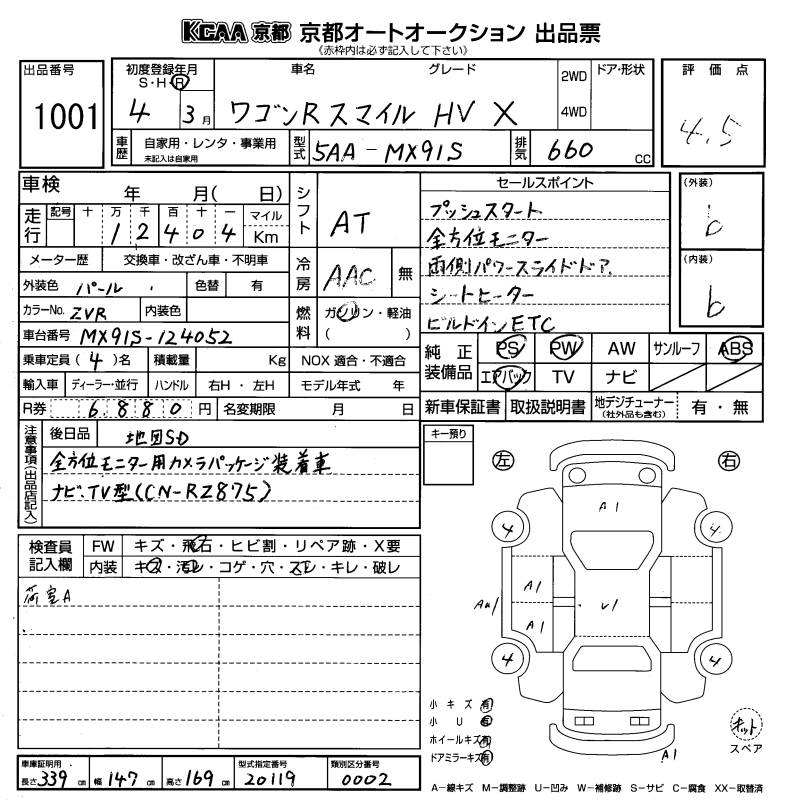 KCAA 京都 京都オートオークション 出品票
《赤枠内は必ず記入して下さい》
出品番号
1001
初度登録年月
S・H・R
4 3月
車名 グレード
ワゴンRスマイル HV X
2WD
4WD
ドア・形状
評価点
4.5
車歴
自家用・レンタ・事業用
未記入は自家用
型式
5AA-MX91S
排気
660 CC
車検 年 月( 日)
走行
記号 十 万 千 百 十 一 マイル
1 2 4 0 4 Km
メーター歴 交換車・改ざん車・不明車
外装色 パール 色替 有
カラーNo. ZVR 内装色
車台番号 MX91S-124052
乗車定員(4)名 積載量 Kg
輸入車 ディーラー・並行 ハンドル 右H・左H
R券 6,880円 名変期限 月 日
シフト AT
冷房 AAC 無
燃料 ガソリン・軽油
( )
NOX適合・不適合
モデル年式 年
セールスポイント
プッシュスタート
全方位モニター
両側パワースライドドア
シートヒーター
ビルドインETC
(外装)
b
(内装)
b
純正装備品
PS PW AW サンルーフ ABS
エアバック TV ナビ
新車保証書 取扱説明書 地デジチューナー 有・無
(社外品も含む)
注意事項(出品店記入)
後日品 地図SD
全方位モニター用カメラパッケージ装着車
ナビ.TV型(CN-RZ875)
キー預り
左
右
検査員記入欄
FW キズ・飛石・ヒビ割・リペア跡・X要
内装 キズ・汚レ・コゲ・穴・スレ・キレ・破レ
荷室A
A1
4
4
A1
A1
V1
4
4
A1
小キズ 有
小U 有
ホイールキズ 有
ドアミラーキズ 有
キット
スペア
車庫証明用
長さ339cm 幅147cm 高さ169cm
型式指定番号
20119
類別区分番号
0002
A-線キズ M-調整跡 U-凹み W-補修跡 S-サビ C-腐食 XX-取替済